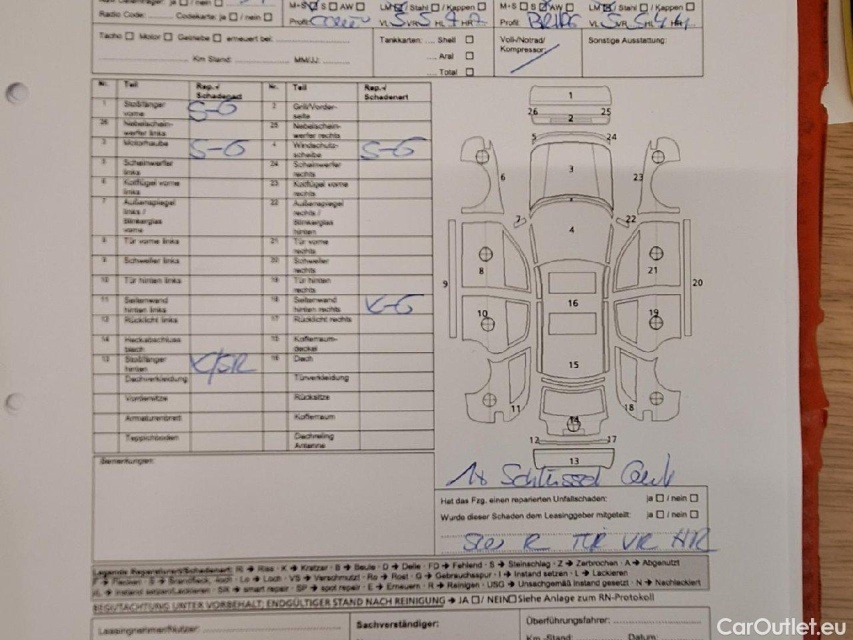 Radio Code: Codekarte: ja / nein
M+S S AW LM Stahl / Kappen M+S S AW LM Stahl / Kappen
Profil: Profil:
Tacho Motor Getriebe erneuert bei:
Km Stand: MM/JJ:
Tankkarten: Shell
Aral
Total
Voll-/Notrad/
Kompressor:
Sonstige Ausstattung:
Nr. Teil Rep.-/ Schadenart Nr. Teil Rep.-/ Schadenart
1 Stoßfänger vorne S-G 2 Grill/Vorderseite
26 Nebelscheinwerfer links 25 Nebelscheinwerfer rechts
3 Motorhaube S-G 4 Windschutzscheibe S-G
5 Scheinwerfer links 24 Scheinwerfer rechts
6 Kotflügel vorne links 23 Kotflügel vorne rechts
7 Außenspiegel links / Blinkerglas vorne 22 Außenspiegel rechts / Blinkerglas hinten
8 Tür vorne links 21 Tür vorne rechts
9 Schweller links 20 Schweller rechts
10 Tür hinten links 19 Tür hinten rechts
11 Seitenwand hinten links 18 Seitenwand hinten rechts K-G
12 Rücklicht links 17 Rücklicht rechts
14 Heckabschlussblech 15 Kofferraumdeckel
13 Stoßfänger hinten K/SR 16 Dach
Dachverkleidung Türverkleidung
Vordersitze Rücksitze
Armaturenbrett Kofferraum
Teppichboden Dachreling Antenne
Bemerkungen:
1
26 2 25
5 24
6 3 23
7 22
8 4 21
9 20
10 16 19
15
11 14 18
12 17
13
1x Schlüssel
Hat das Fzg. einen reparierten Unfallschaden: ja / nein
Wurde dieser Schaden dem Leasinggeber mitgeteilt: ja / nein
R TÜR VR HR
Legende Reparaturart/Schadenart: RI → Riss · K → Kratzer · B → Beule · D → Delle · FD → Fehlend · S → Steinschlag · Z → Zerbrochen · A → Abgenutzt
F → Flecken · B → Brandfleck, -loch · Lo → Loch · VS → Verschmutzt · Ro → Rost · G → Gebrauchsspur · I → Instand setzen · L → Lackieren
IL → Instand setzen/Lackieren · SR → smart repair · SP → spot repair · E → Erneuern · R → Reinigen · USG → Unsachgemäß Instand gesetzt · N → Nachlackiert
BEGUTACHTUNG UNTER VORBEHALT; ENDGÜLTIGER STAND NACH REINIGUNG → JA / NEIN Siehe Anlage zum RN-Protokoll
Leasingnehmer/Nutzer: Sachverständiger: Überführungsfahrer:
Km.-Stand: Datum:
CarOutlet.eu